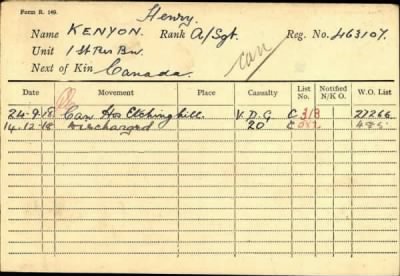 Form R. 149.
Henry.
Name KENYON. Rank A/Sgt. Reg. No. 463107.
Unit 1st Res Bn.
Next of Kin Canada.
can
Date Movement Place Casualty List No. Notified N/K O. W.O. List
24-9-18 Can Hos Etchinghill. V.D.G C 313 27266
14-12-18 Discharged 20 C